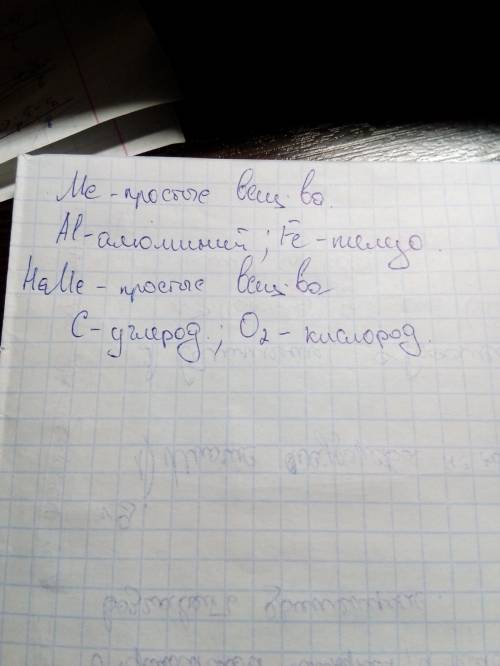 Ме - простые вещ-ва.
Al - алюминий; Fe - железо.
НеМе - простые вещ-ва
C - углерод; O2 - кислород.